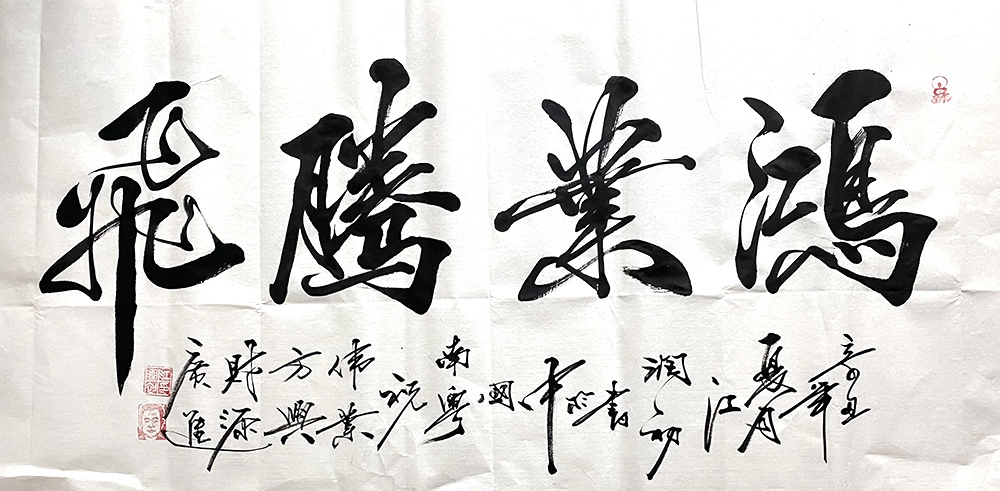 鴻業騰飛
辛丑年
夏月
江
潤初
書於中
國
南粵
祝
偉業
方興
財源
廣進